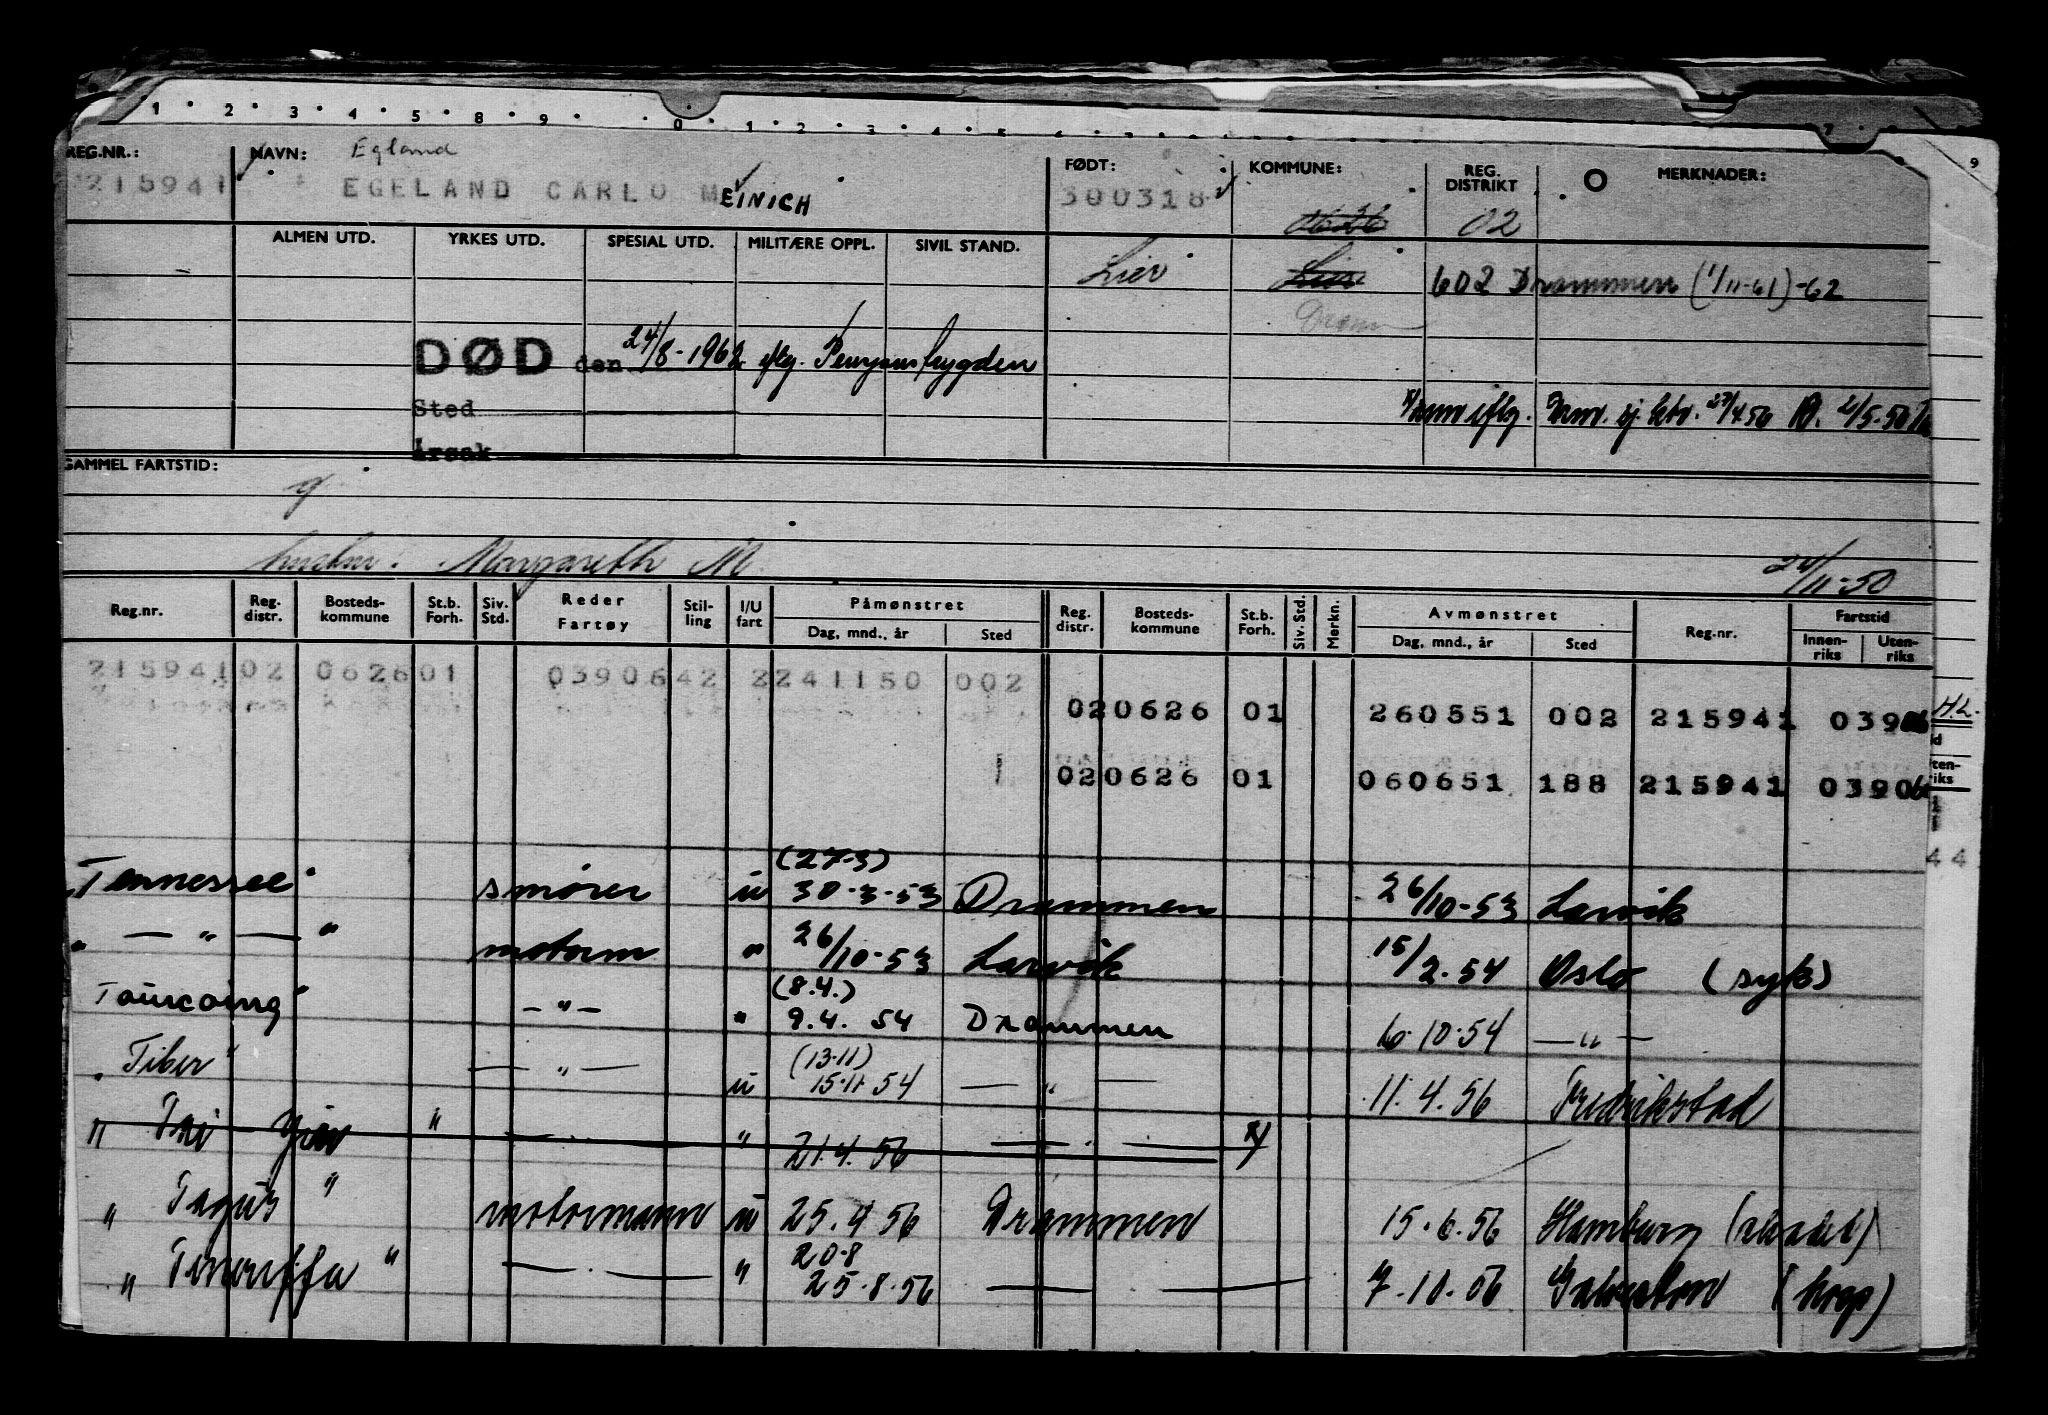 1 2 3 4 5 8 9 0 1 2 3 4 5 7 9
REG.NR.: NAVN: Egland FØDT: KOMMUNE: REG. DISTRIKT MERKNADER:
215941 EGELAND CARLO MEINICH 300318 02
ALMEN UTD. YRKES UTD. SPESIAL UTD. MILITÆRE OPPL. SIVIL STAND.
Lier Lier 602 Drammen (1/11-61)-62
Dram
DØD den 24/8-1962 iflg. Penjonsbygden
Sted
Årsak
GAMMEL FARTSTID:
hustru: Margareth M. 24/11-50
Reg.nr. Reg. distr. Bosteds-kommune St.b. Forh. Siv. Std. Reder Fartøy Stil-ling I/U fart Påmønstret Dag, mnd., år Sted Reg. distr. Bosteds-kommune St.b. Forh. Siv. Std. Merkn. Avmønstret Dag, mnd., år Sted Reg.nr. Fartstid Innen-riks Uten-riks
215941 02 0626 01 0390642 2 241150 002
020626 01 260551 002 215941 03906 H.L.
020626 01 060651 188 215941 03906
44
(27-3)
"Tennessee" smører u 30-3-53 Drammen 26/10-53 Larvik
" — " — " motorm " 26/10-53 Larvik 15/2-54 Oslo (syk)
(8.4.)
Tourcoing" — " — " 9.4. 54 Drammen 6-10-54 — " —
(13-11)
"Tiber" — " — u 15-11-54 — " — 11.4.56 Fredrikstad
" Tai Yin " — " 21.4.56 — " — x)
" Tagus " motormann u 25.4 56 Drammen 15.6.56 Hamburg (skadet)
20-8
" Teneriffa " — " 25.8.56 — 7.11.56 Galveston (hosp)